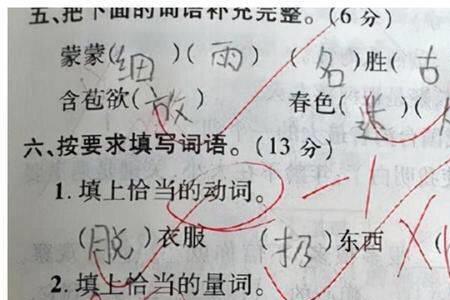 五、把下面的词语补充完整。(6分)
蒙蒙(细)(雨) (名)胜(古
含苞欲(放) 春色(迷)(
六、按要求填写词语。(13分)
1. 填上恰当的动词。 -1
(脱)衣服 (扔)东西 (
2. 填上恰当的量词。